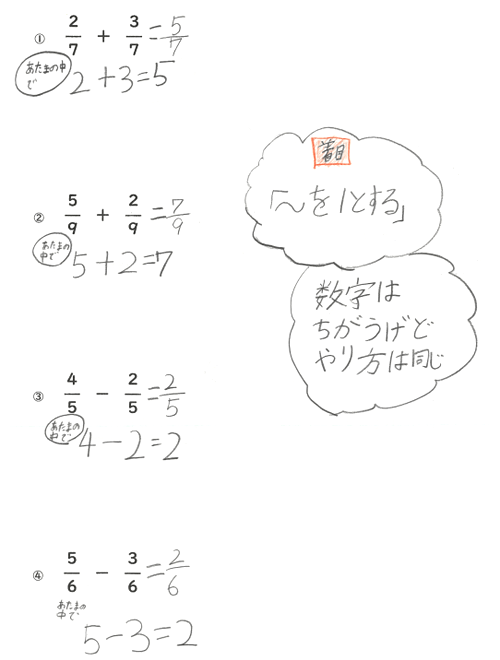 ① 2/7 + 3/7 = 5/7
あたまの中
で
2+3=5
着目
「〜を1とする」
② 5/9 + 2/9 = 7/9
あたまの
中で
5+2=7
数字は
ちがうけど
やり方は同じ
③ 4/5 − 2/5 = 2/5
あたまの
中で
4−2=2
④ 5/6 − 3/6 = 2/6
あたまの
中で
5−3=2